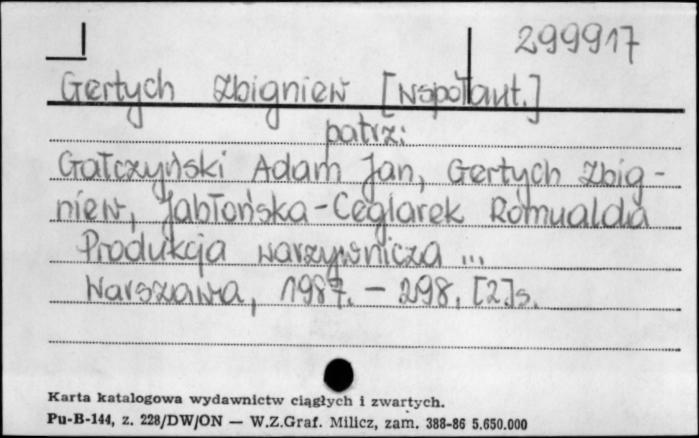 299917
Gertych Zbigniew [współaut.]
patrz:
Gałczyński Adam Jan, Gertych Zbig-
niew, Jabłońska-Ceglarek Romualda
Produkcja warzywnicza ...
Warszawa, 1987. - 298, [2]s.
Karta katalogowa wydawnictw ciągłych i zwartych.
Pu-B-144, z. 228/DW/ON — W.Z.Graf. Milicz, zam. 388-86 5.650.000